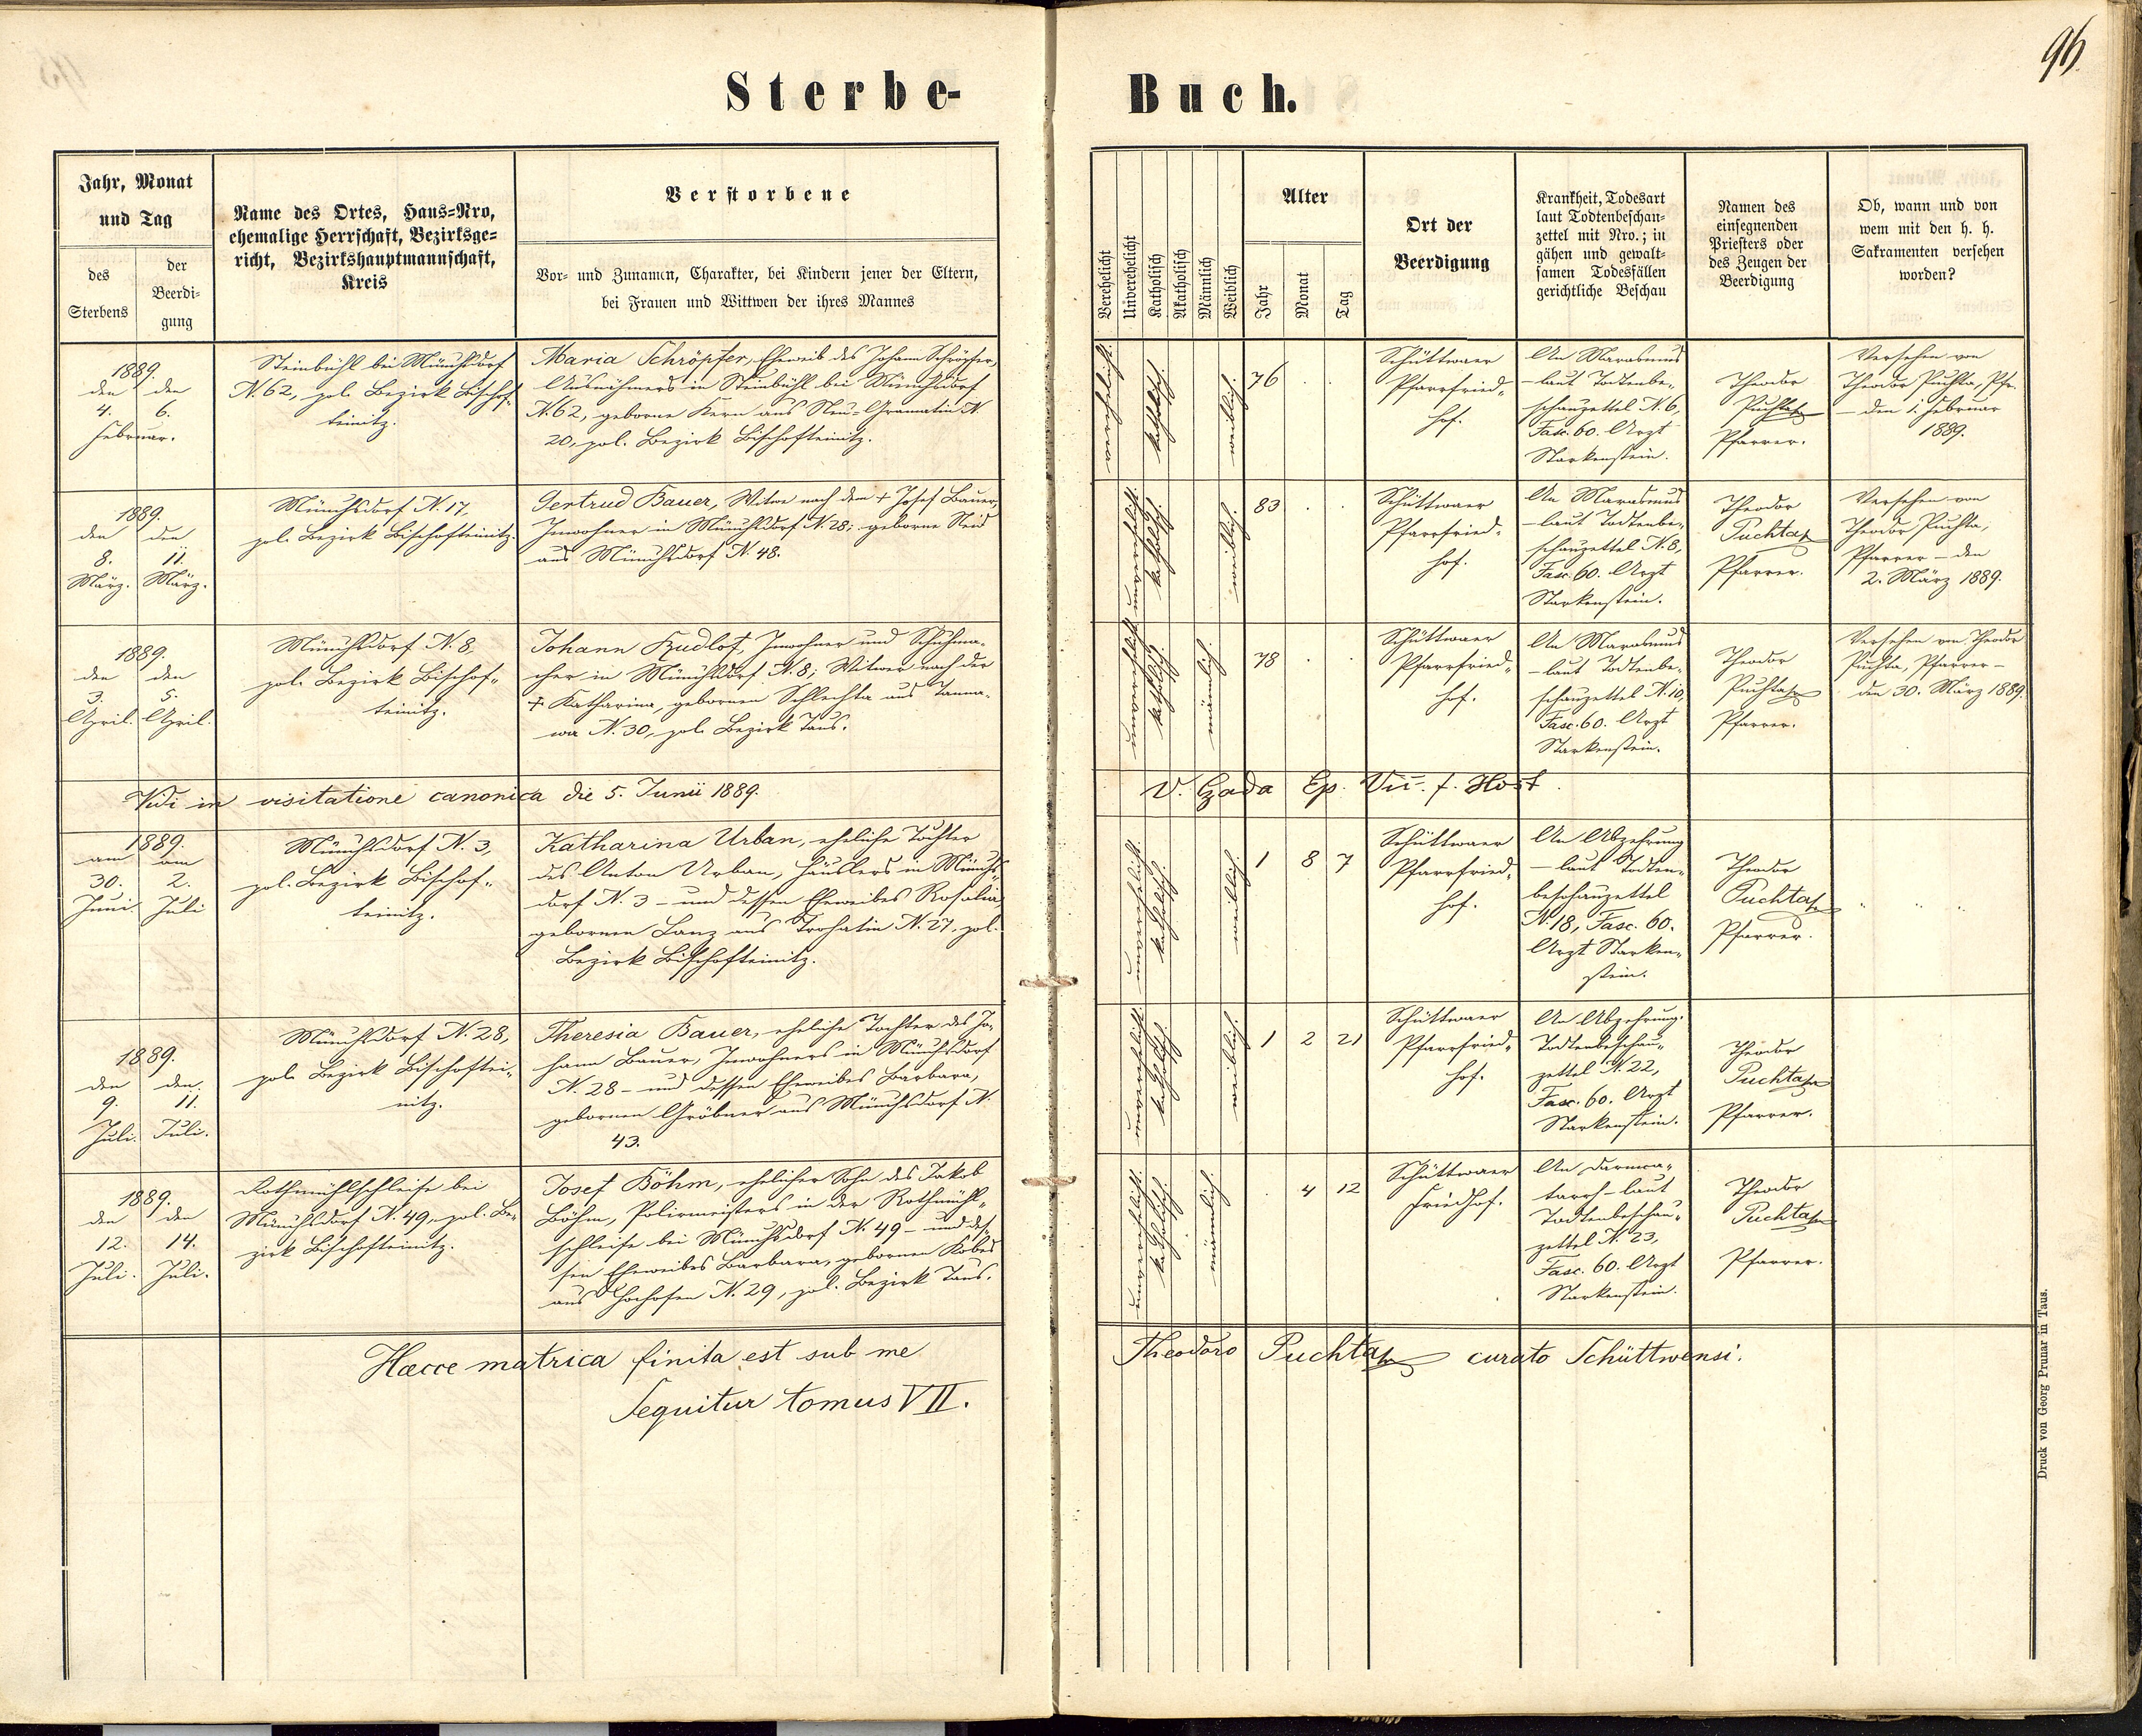 96.
Sterbe-Buch.
Jahr, Monat
und Tag
des
Sterbens
der
Beerdi-
gung
Name des Ortes, Haus-Nro,
ehemalige Herrschaft, Bezirksge-
richt, Bezirkshauptmannschaft,
Kreis
Verstorbene
Vor- und Zunamen, Charakter, bei Kindern jener der Eltern,
bei Frauen und Wittwen der ihres Mannes
Verehelicht
Unverehelicht
Katholisch
Akatholisch
Männlich
Weiblich
Alter
Jahr
Monat
Tag
Ort der
Beerdigung
Krankheit, Todesart
laut Todtenbeschau-
zettel mit Nro.; in
gähen und gewalt-
samen Todesfällen
gerichtliche Beschau
Namen des
einsegnenden
Priesters oder
des Zeugen der
Beerdigung
Ob, wann und von
wem mit den h. h.
Sakramenten versehen
worden?
1889.
den den
4. 6.
Februar.
Steinbühl bei Münchsdorf
N. 62, pol. Bezirk Bischof-
teinitz.
Maria Schröpfer, Eheweib des Johann Schröpfer,
Ausnehmers in Steinbühl bei Münchsdorf
N. 62, geborne Kern aus Neu-Gramatin N.
20, pol. Bezirk Bischofteinitz.
verehelicht.
katholisch.
weiblich.
76 . .
Schüttwaer
Pfarrfried-
hof.
An Marasmus
– laut Todtenbe-
schauzettel N. 6,
Fasc. 60. Arzt
Starkenstein.
Theodor
Puchta
Pfarrer.
Versehen von
Theodor Puchta, Pfr.
– den 1. Februar
1889.
1889.
den den
8. 11.
März. März.
Münchsdorf N. 17,
pol. Bezirk Bischofteinitz.
Gertrud Bauer, Witwe nach dem + Josef Bauer,
Inwohner in Münchsdorf N. 28; geborne Neid
aus Münchsdorf N. 48.
unverehelicht.
katholisch.
weiblich.
83 . .
Schüttwaer
Pfarrfried-
hof.
An Marasmus
– laut Todtenbe-
schauzettel N. 8,
Fasc. 60. Arzt
Starkenstein.
Theodor
Puchta
Pfarrer.
Versehen von
Theodor Puchta,
Pfarrer – den
2. März 1889.
1889.
den den
3. 5.
April. April.
Münchsdorf N. 8,
pol. Bezirk Bischof-
teinitz.
Johann Kudlof, Inwohner und Schuhma-
cher in Münchsdorf N. 8; Witwer nach der
+ Katharina, gebornen Schlechta aus Tanna-
wa N. 30, pol. Bezirk Taus.
unverehelicht
katholisch.
männlich.
78 . .
Schüttwaer
Pfarrfried-
hof.
An Marasmus
– laut Todtenbe-
schauzettel N. 10,
Fasc. 60. Arzt
Starkenstein.
Theodor
Puchta
Pfarrer.
Versehen von Theodor
Puchta, Pfarrer –
den 30. März 1889.
Vidi in visitatione canonica die 5. Junii 1889. V. Czada Ep. Vic. f. Host.
1889.
am am
30. 2.
Juni Juli
Münchsdorf N. 3,
pol. Bezirk Bischof-
teinitz.
Katharina Urban, eheliche Tochter
des Anton Urban, Häuslers in Münchs-
dorf N. 3 – und dessen Eheweibes Rosalia,
gebornen Lanz aus Trohatin N. 27, pol.
Bezirk Bischofteinitz.
unverehelicht.
katholisch.
weiblich.
1 8 7
Schüttwaer
Pfarrfried-
hof.
An Abzehrung
– laut Todten-
beschauzettel
N. 18, Fasc. 60.
Arzt Starken-
stein.
Theodor
Puchta
Pfarrer.
1889.
den den
9. 11.
Juli. Juli.
Münchsdorf N. 28,
pol. Bezirk Bischoftei-
nitz.
Theresia Bauer, eheliche Tochter des Jo-
hann Bauer, Inwohners in Münchsdorf
N. 28 – und dessen Eheweibes Barbara,
gebornen Gröbner aus Münchsdorf N.
43.
unverehelicht
katholisch
weiblich.
1 2 21
Schüttwaer
Pfarrfried-
hof.
An Abzehrung.
Todtenbeschau-
zettel N. 22,
Fasc. 60. Arzt
Starkenstein.
Theodor
Puchta
Pfarrer.
1889.
den den
12. 14.
Juli. Juli.
Rothmühlschleife bei
Münchsdorf N. 49, pol. Be-
zirk Bischofteinitz.
Josef Böhm, ehelicher Sohn des Jakob
Böhm, Poliermeisters in der Rothmühl-
schleife bei Münchsdorf N. 49 – und des-
sen Eheweibes Barbara, gebornen Kobes
aus Hochofen N. 29, pol. Bezirk Taus.
unverehelicht.
katholisch.
männlich.
. 4 12
Schüttwaer
Friedhof.
An Darmca-
tarrh – laut
Todtenbeschau-
zettel N. 23,
Fasc. 60. Arzt
Starkenstein.
Theodor
Puchta
Pfarrer.
Haecce matrica finita est sub me Theodoro Puchta curato Schüttwensi.
Sequitur tomus VII.
Druck von Georg Prunar in Taus.